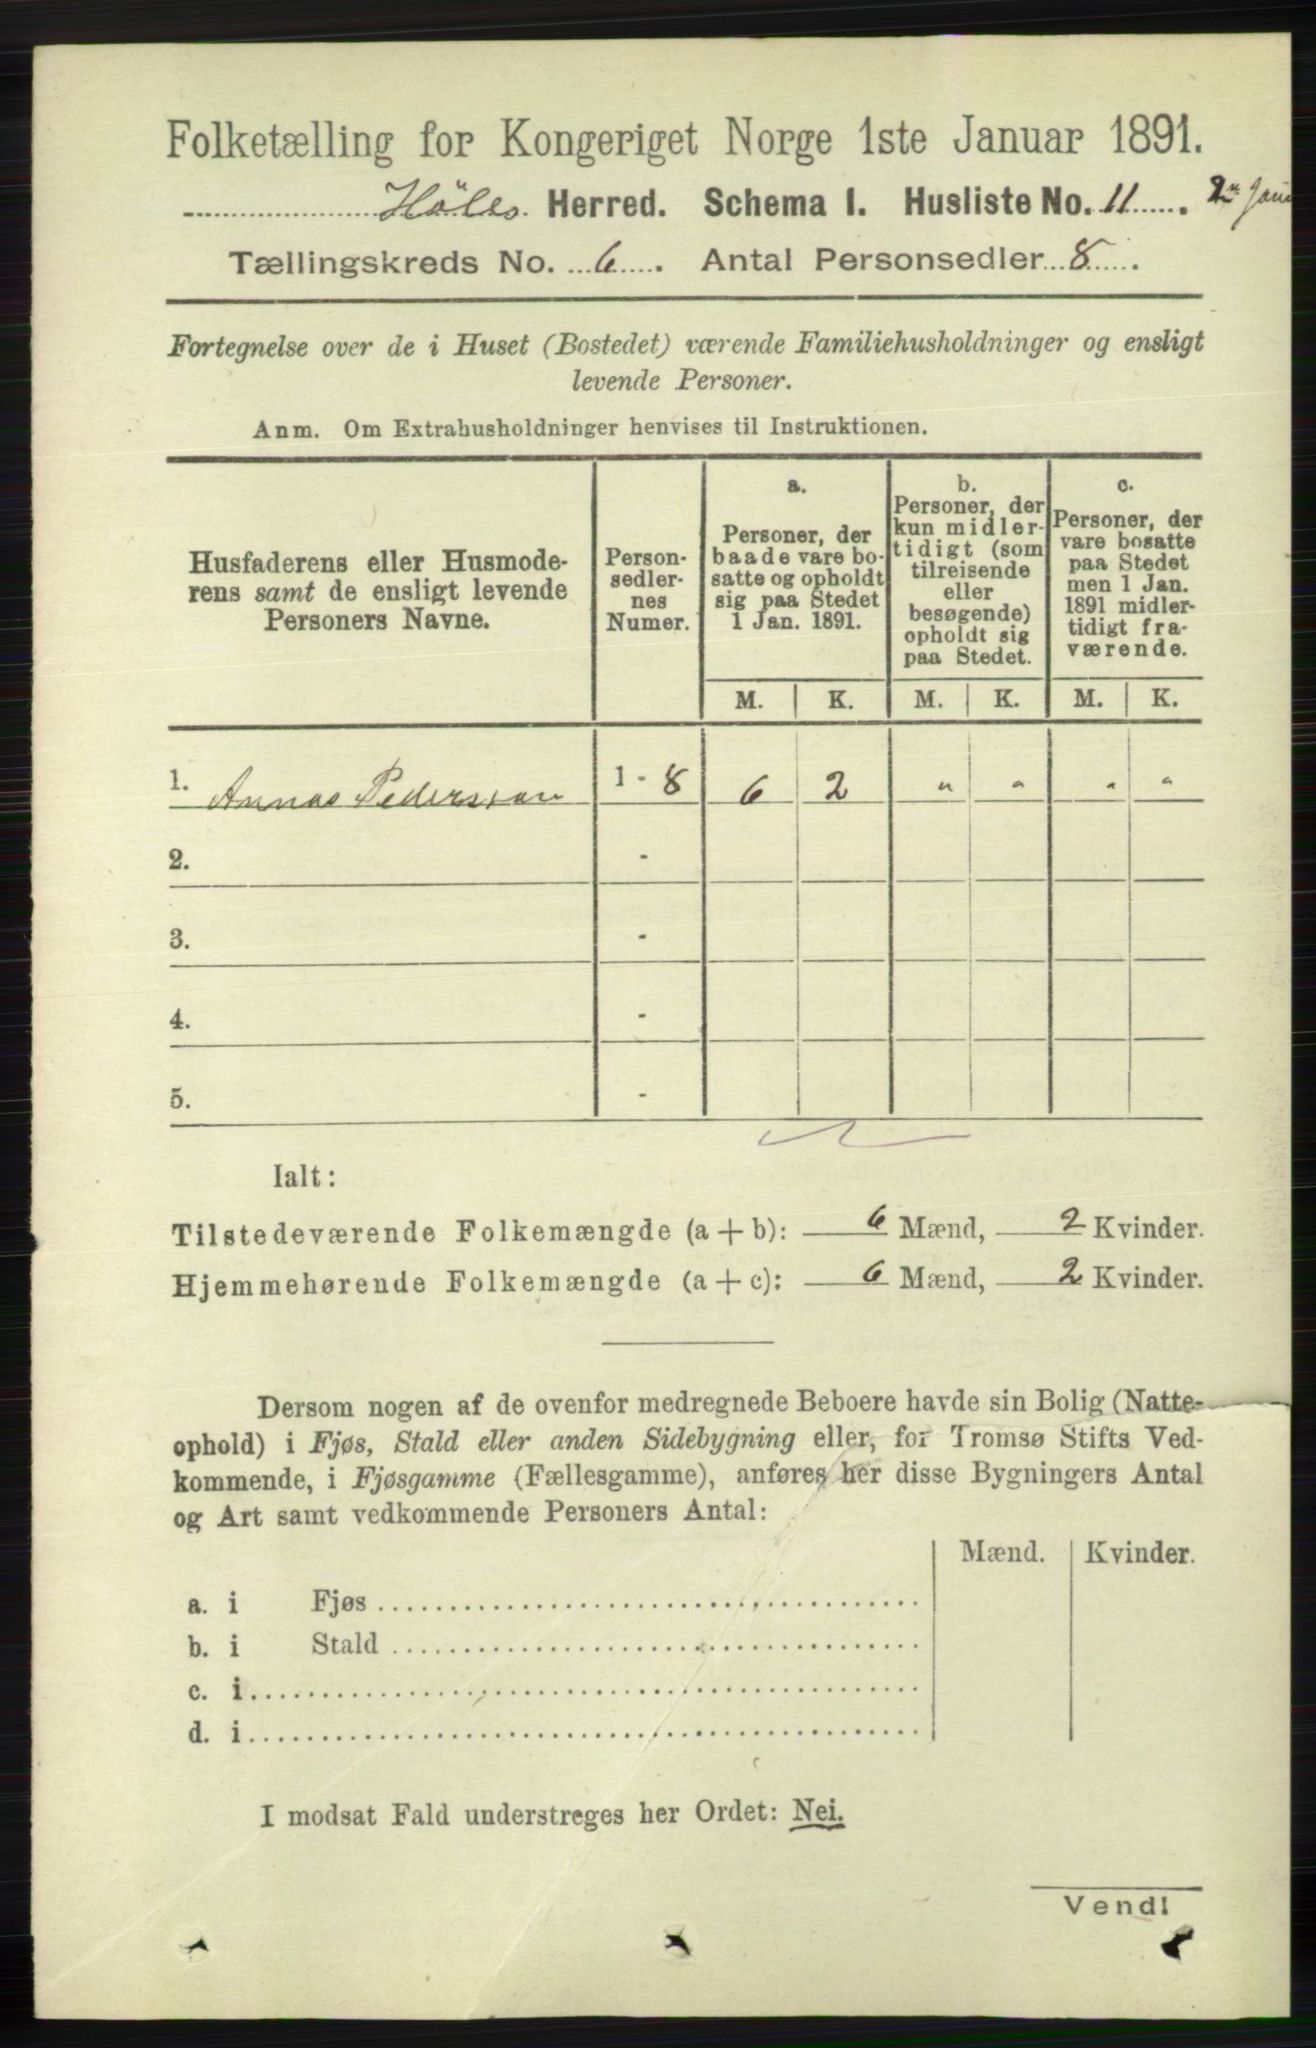 Folketælling for Kongeriget Norge 1ste Januar 1891.
Höles Herred. Schema I. Husliste No. 11. 2n Janu
Tællingskreds No. 6. Antal Personsedler 8.
Fortegnelse over de i Huset (Bostedet) værende Familiehusholdninger og ensligt
levende Personer.
Anm. Om Extrahusholdninger henvises til Instruktionen.
Husfaderens eller Husmode-
rens samt de ensligt levende
Personers Navne.
Person-
sedler-
nes
Numer.
a.
Personer, der
baade vare bo-
satte og opholdt
sig paa Stedet
1 Jan. 1891.
b.
Personer, der
kun midler-
tidigt (som
tilreisende
eller
besøgende)
opholdt sig
paa Stedet.
c.
Personer, der
vare bosatte
paa Stedet
men 1 Jan.
1891 midler-
tidigt fra-
værende.
M. K. M. K. M. K.
1. Pederssen 1 - 8 6 2 " " " "
2. -
3. -
4. -
5. -
Ialt:
Tilstedeværende Folkemængde (a + b): 6 Mænd, 2 Kvinder.
Hjemmehørende Folkemængde (a + c): 6 Mænd, 2 Kvinder.
Dersom nogen af de ovenfor medregnede Beboere havde sin Bolig (Natte-
ophold) i Fjøs, Stald eller anden Sidebygning eller, for Tromsø Stifts Ved-
kommende, i Fjøsgamme (Fællesgamme), anføres her disse Bygningers Antal
og Art samt vedkommende Personers Antal:
Mænd. Kvinder.
a. i Fjøs
b. i Stald
c. i
d. i
I modsat Fald understreges her Ordet: Nei.
Vend!